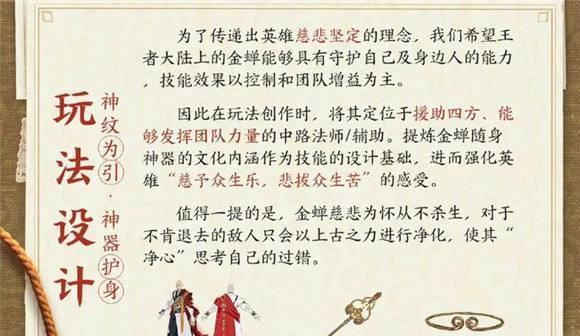 玩法设计
神纹为引·神器护身
为了传递出英雄慈悲坚定的理念，我们希望王
者大陆上的金蝉能够具有守护自己及身边人的能力
，技能效果以控制和团队增益为主。
因此在玩法创作时，将其定位于援助四方、能
够发挥团队力量的中路法师/辅助。提炼金蝉随身
神器的文化内涵作为技能的设计基础，进而强化英
雄“慈予众生乐，悲拔众生苦”的感受。
值得一提的是，金蝉慈悲为怀从不杀生，对于
不肯退去的敌人只会以上古之力进行净化，使其“
净心”思考自己的过错。